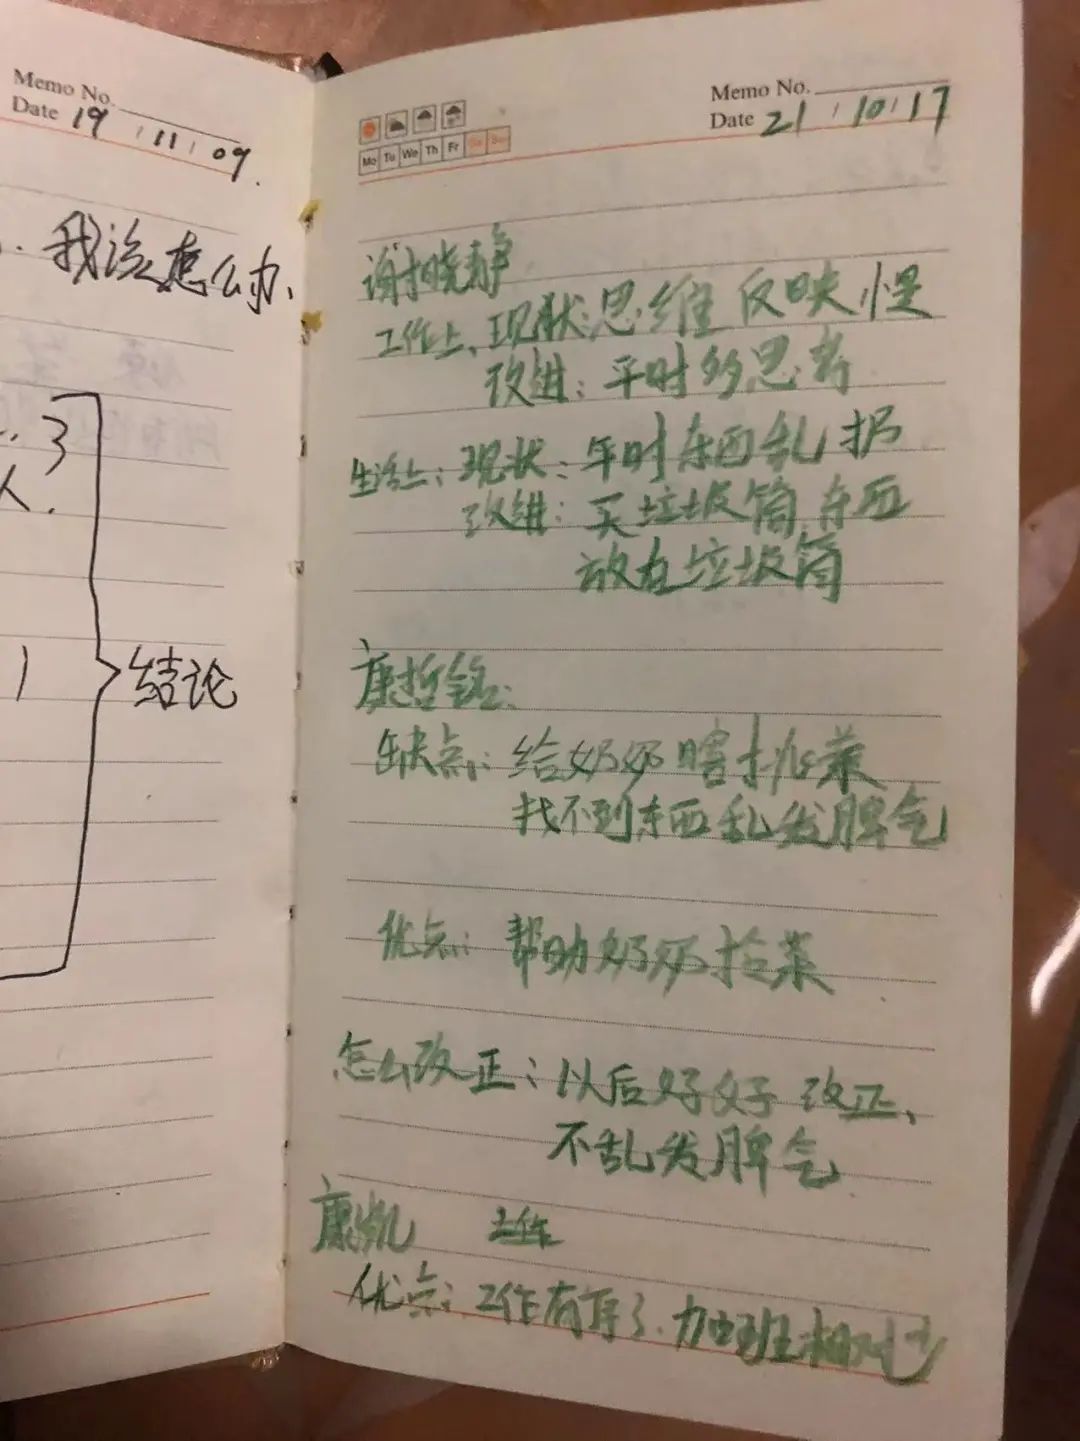 Memo No.
Date 19 / 11 / 09.
我该怎么办、
3
人.
结论
Memo No.
Date 21 / 10 / 17
Mo Tu We Th Fr Sa Su
谢晓静
工作上、现状:思维反映慢
改进:平时多思考
生活上:现状:平时东西乱扔
改进:买垃圾筒,东西
放在垃圾筒
康哲铭:
缺点:给奶奶瞎挑菜
找不到东西乱发脾气
优点:帮助奶奶捡菜
怎么改正:以后好好改正、
不乱发脾气
康凯 工作
优点:工作有序了.加班相对少